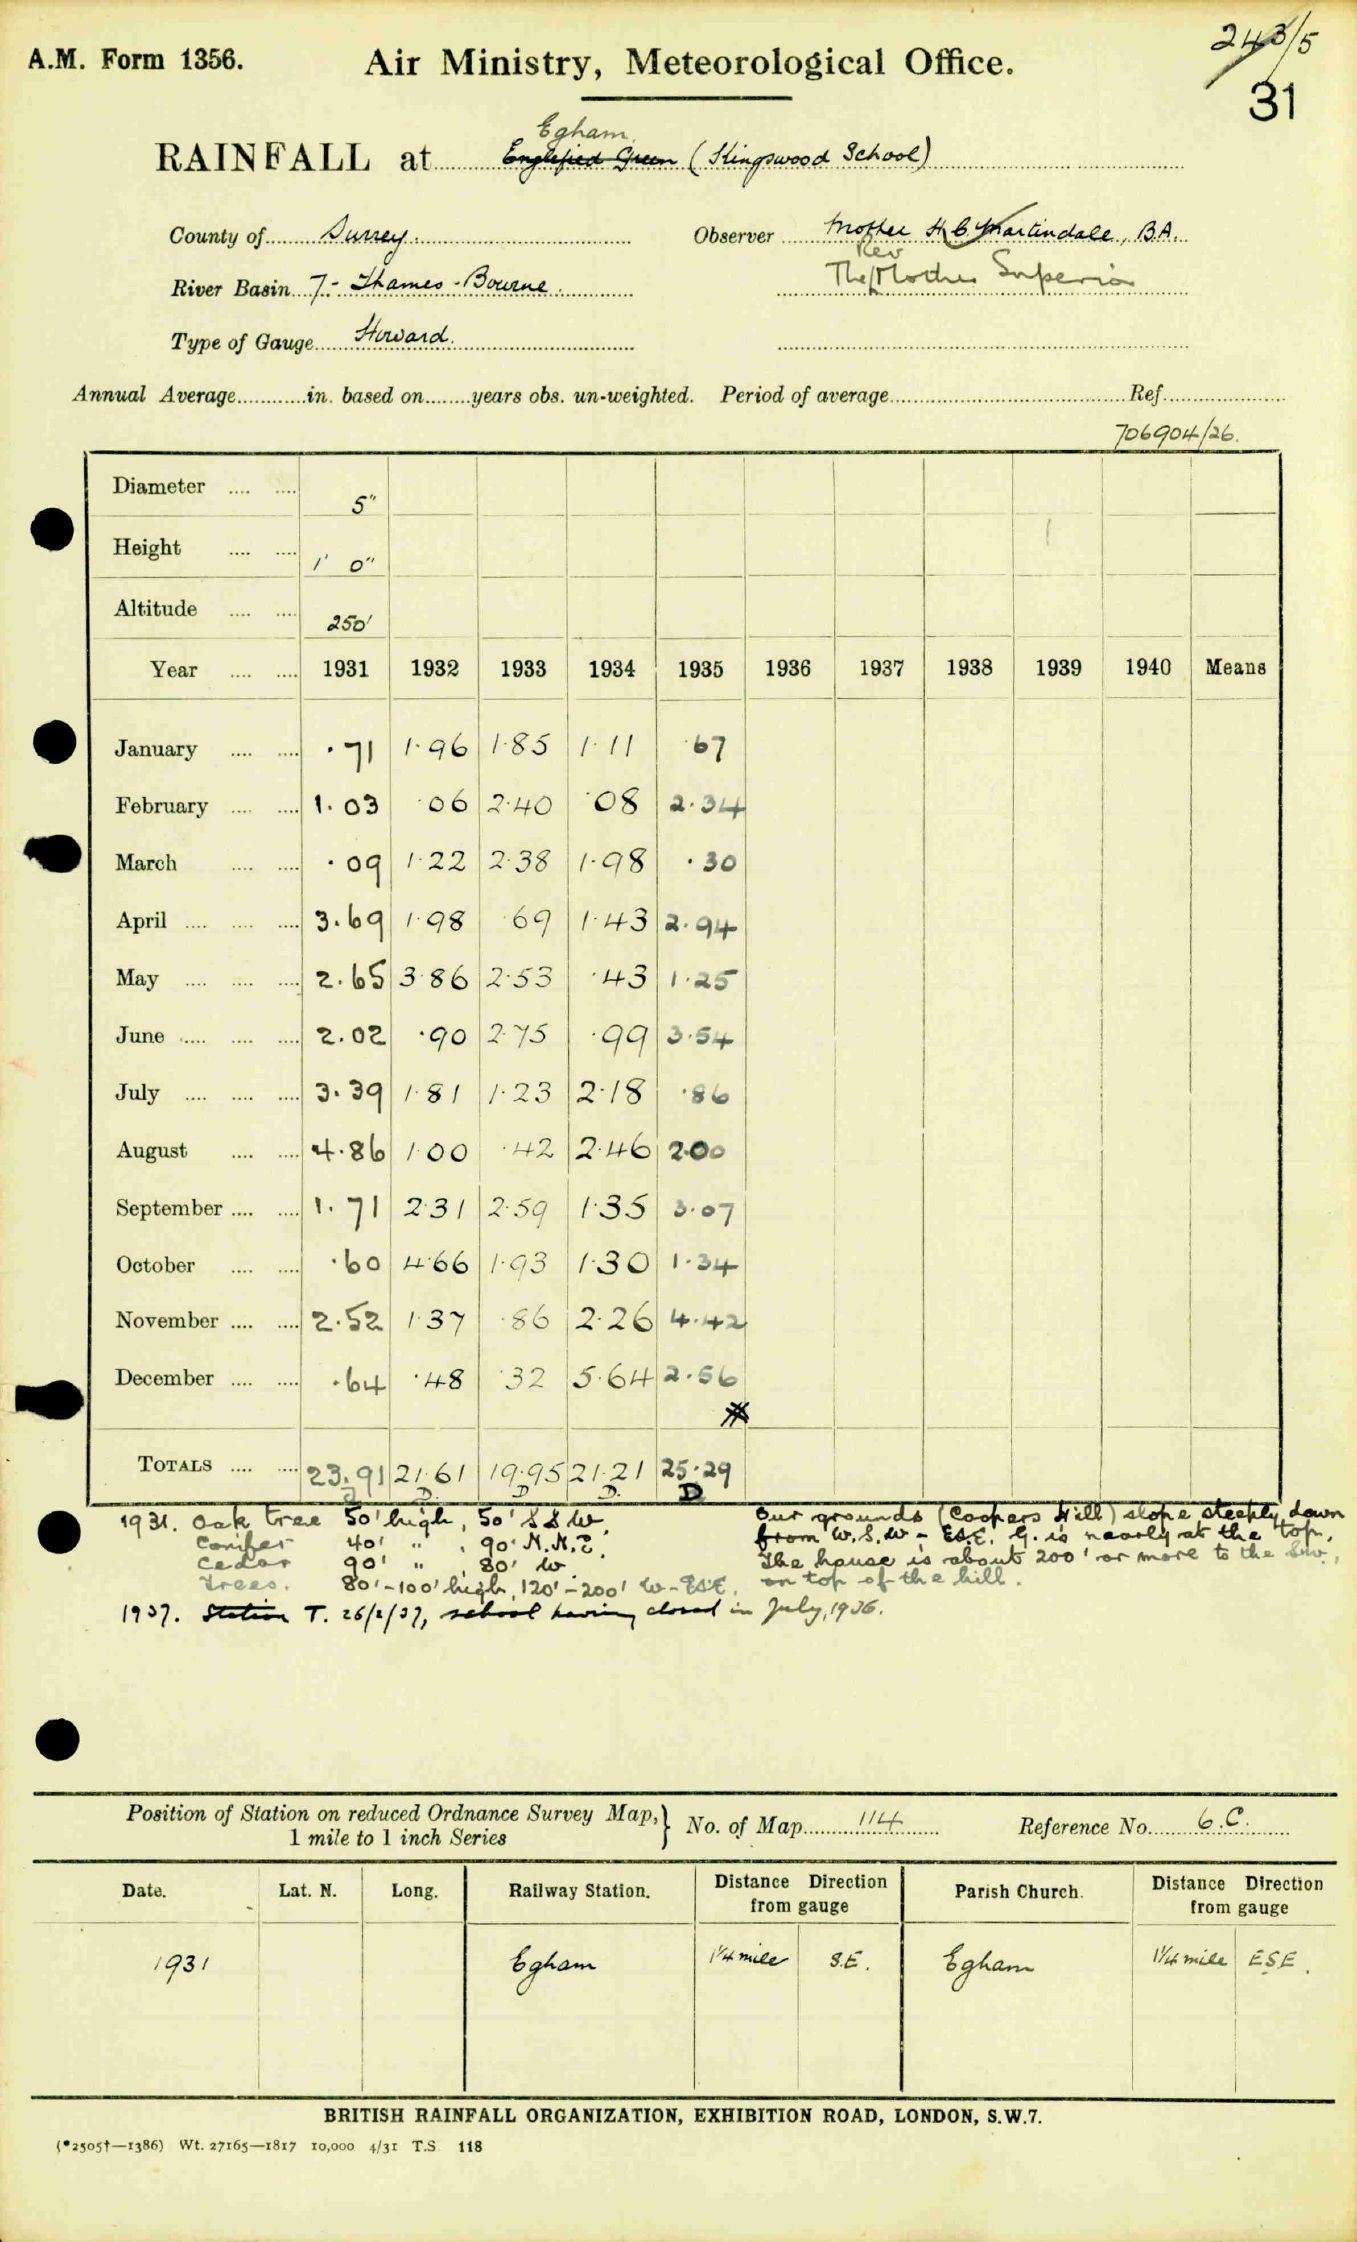 A.M. Form 1356. Air Ministry, Meteorological Office. 243/5
31
Egham
RAINFALL at Englefied Green (Kingswood School)
County of Surrey. Observer Mother H.C. Martindale, B.A.
River Basin 7- Thames - Bourne. The Rev Mother Superior
Type of Gauge Howard.
Annual Average in. based on years obs. un-weighted. Period of average Ref.
706904/26.
Diameter 5"
Height 1' 0"
Altitude 250'
Year 1931 1932 1933 1934 1935 1936 1937 1938 1939 1940 Means
January .71 1.96 1.85 1.11 .67
February 1.03 .06 2.40 .08 2.34
March .09 1.22 2.38 1.98 .30
April 3.69 1.98 .69 1.43 2.94
May 2.65 3.86 2.53 .43 1.25
June 2.02 .90 2.75 .99 3.54
July 3.39 1.81 1.23 2.18 .86
August 4.86 1.00 .42 2.46 2.00
September 1.71 2.31 2.59 1.35 3.07
October .60 4.66 1.93 1.30 1.34
November 2.52 1.37 .86 2.26 4.42
December .64 .48 .32 5.64 2.56
TOTALS 23.91 21.61 19.95 21.21 25.29
D. D D. D
1931. Oak tree 50' high, 50' S S W. Our grounds (Coopers Hill) slope steeply down
Conifer 40' " , 90' N.N.E. from W.S.W - ESE. G. is nearly at the top.
Cedar 90' " , 80' W. The house is about 200' or more to the SW.,
Trees. 80'-100' high, 120'-200' W-ESE. on top of the hill.
1937. Station T. 26/2/37, school having closed in July, 1936.
Position of Station on reduced Ordnance Survey Map, 1 mile to 1 inch Series } No. of Map 114 Reference No. 6.C.
Date. Lat. N. Long. Railway Station. Distance Direction from gauge Parish Church. Distance Direction from gauge
1931 Egham 1/4 mile S.E. Egham 1/4 mile ESE.
BRITISH RAINFALL ORGANIZATION, EXHIBITION ROAD, LONDON, S.W.7.
(*2505†—1386) Wt. 27165—1817 10,000 4/31 T.S. 118